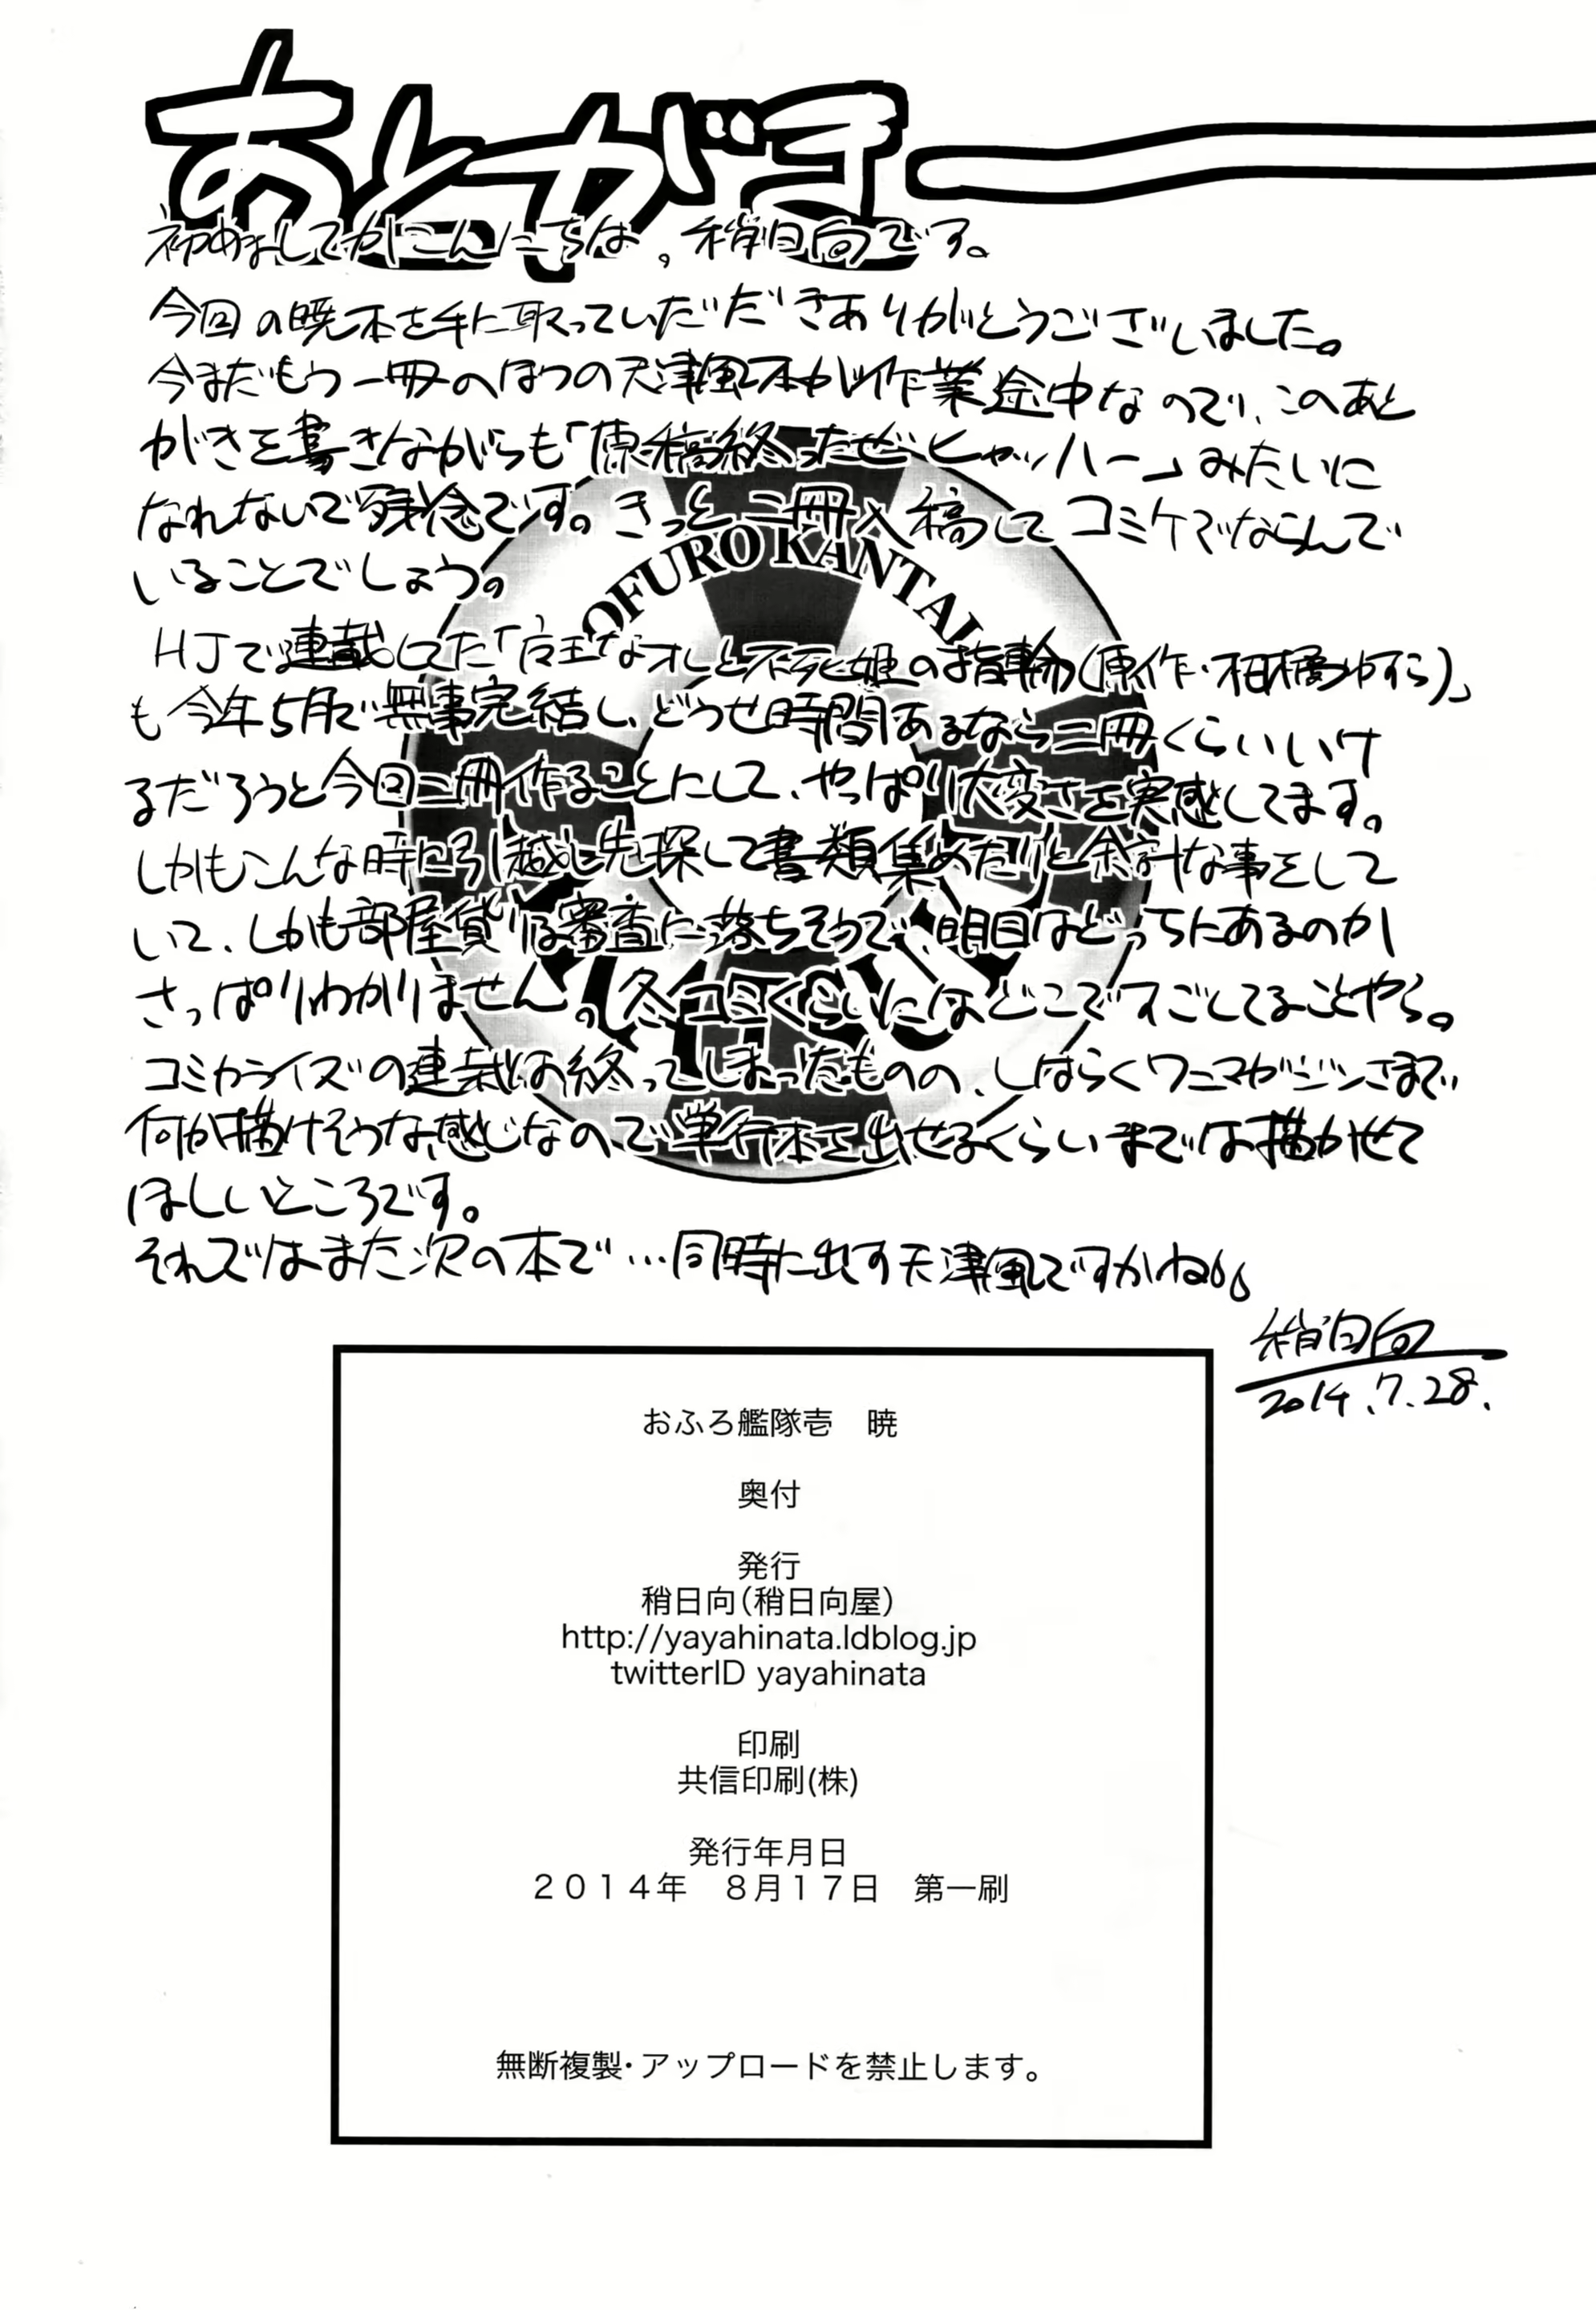 あとがき
初めましてかこんにちは、稍日向です。
今回の暁本を手に取っていただきありがとうございました。
今まだもう一冊のほうの天津風本が作業途中なので、このあと
がきを書きながらも「原稿終ったぜーヒャッハー」みたいに
なれないで残念です。きっと二冊入稿してコミケでならんで
いることでしょう。
HJで連載してた「魔王なオレと不死姫の指輪(原作・柑橘ゆすら)」
も今年5月で無事完結し、どうせ時間あるなら二冊くらいいけ
るだろうと今回二冊作ることにして、やっぱり大変さを実感してます。
しかもこんな時に引越し先探して書類集めたりと余計な事をして
いて、しかも部屋貸りは審査に落ちそうで、明日はどっちにあるのか
さっぱりわかりません。冬コミくらいにはどこですごしてることやら。
コミカライズの連載は終ってしまったものの、しばらくワニマガジンさまで
何か描けそうな感じなので単行本を出せるくらいまでは描かせて
ほしいところです。
それではまた次の本で…同時に出す天津風ですかね。
稍日向
2014.7.28.
OFURO KANTAI
おふろ艦隊壱　暁
奥付
発行
稍日向（稍日向屋）
http://yayahinata.ldblog.jp
twitterID yayahinata
印刷
共信印刷(株)
発行年月日
２０１４年　８月１７日　第一刷
無断複製・アップロードを禁止します。